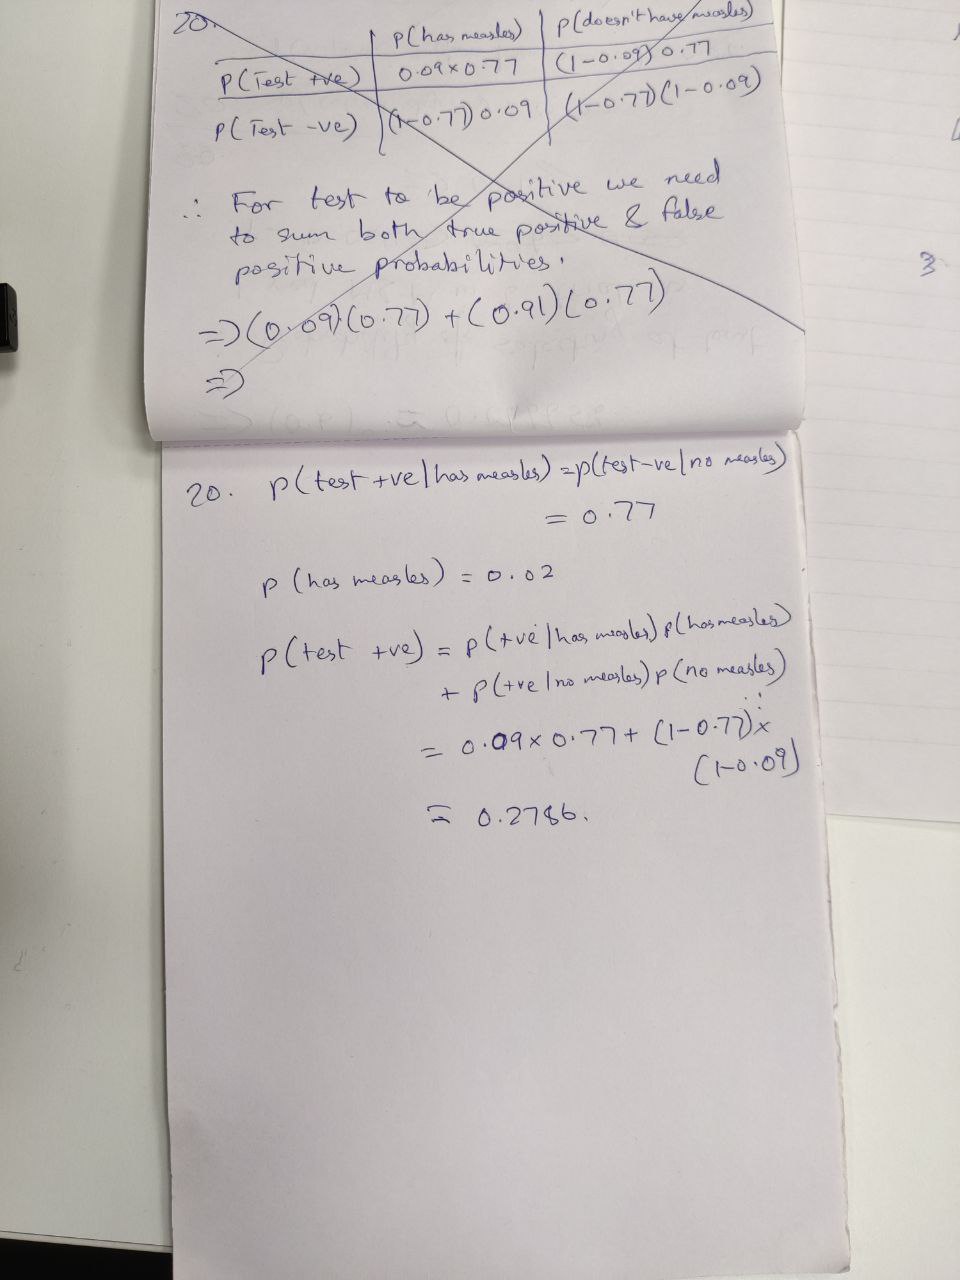 20.
p(has measles) p(doesn't have measles)
P(Test +ve) 0.09×0.77 (1-0.09) 0.77
P(Test -ve) (1-0.77) 0.09 (1-0.77)(1-0.09)
∴ For test to be positive we need
to sum both true positive & false
positive probabilities.
=> (0.09)(0.77) + (0.91)(0.77)
=>
20. p(test +ve | has measles) = p(test -ve | no measles)
= 0.77
p (has measles) = 0.02
p(test +ve) = p(+ve | has measles) p(has measles)
+ p(+ve | no measles) p(no measles)
= 0.09 × 0.77 + (1-0.77) ×
(1-0.09)
= 0.2786.
3